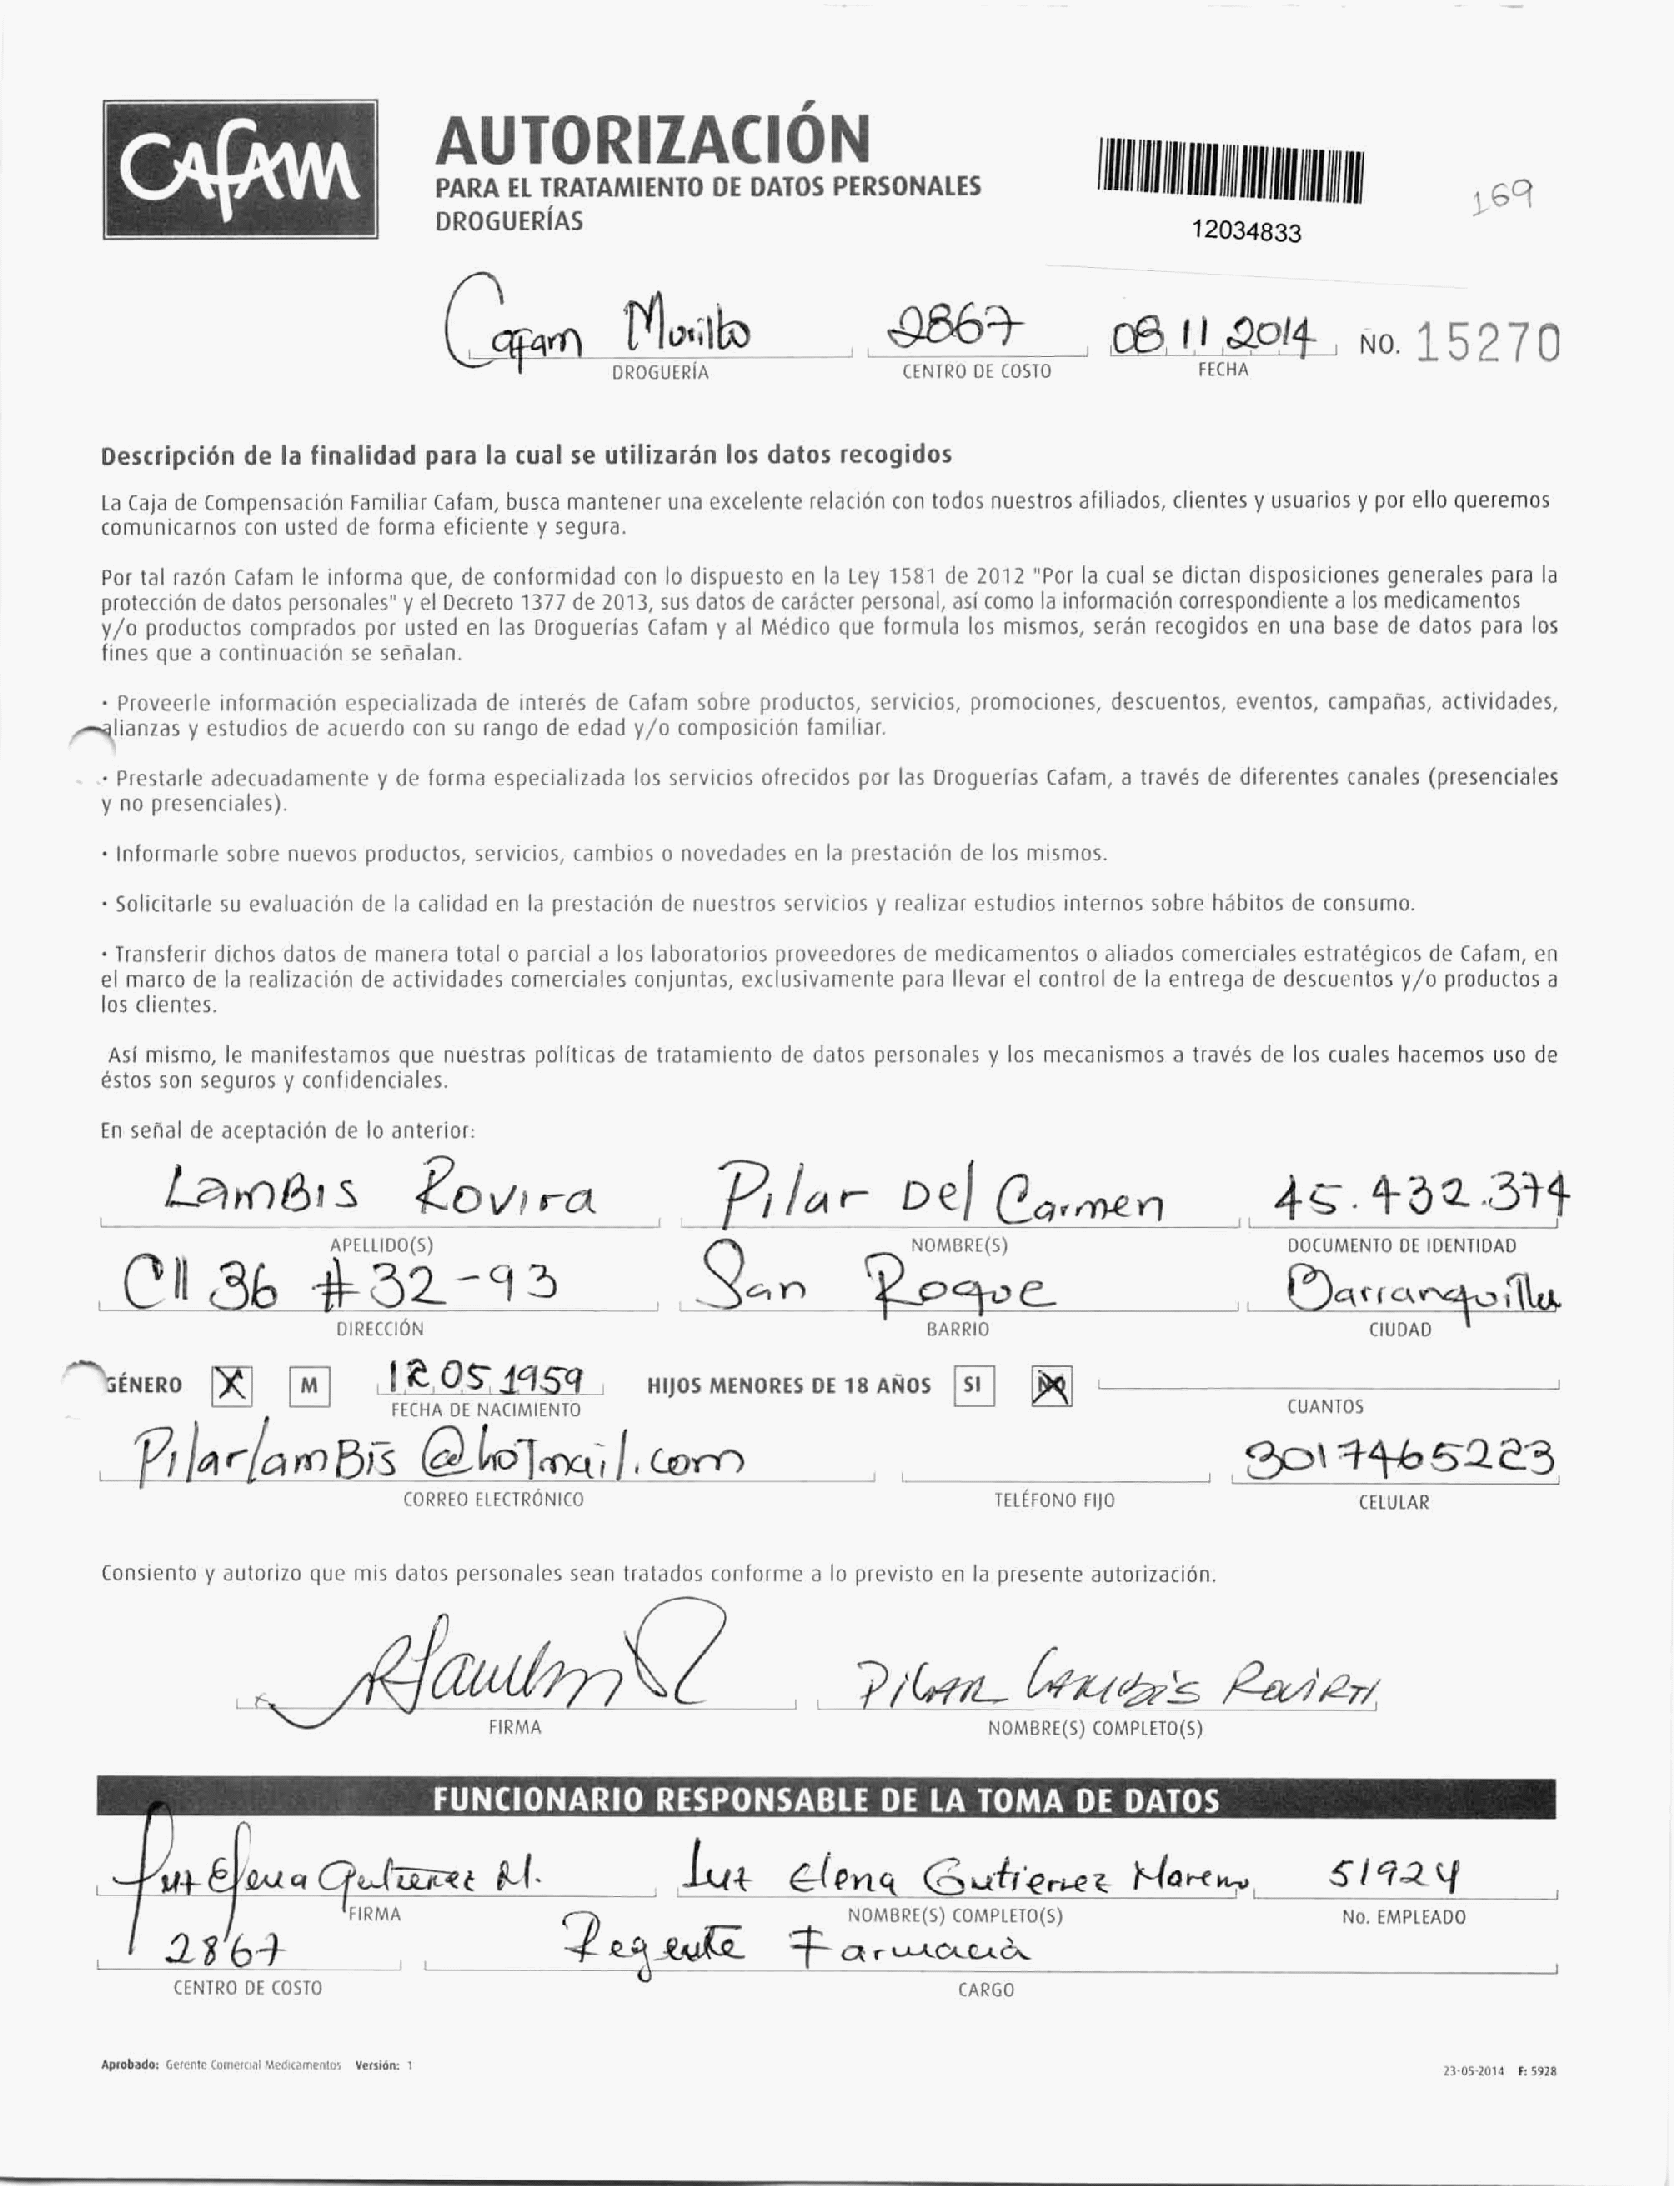 CAFAM
AUTORIZACIÓN
PARA EL TRATAMIENTO DE DATOS PERSONALES
DROGUERÍAS
12034833
169
Cafam Murillo 2867 08 11 2014 NO. 15270
DROGUERÍA CENTRO DE COSTO FECHA
Descripción de la finalidad para la cual se utilizarán los datos recogidos
La Caja de Compensación Familiar Cafam, busca mantener una excelente relación con todos nuestros afiliados, clientes y usuarios y por ello queremos
comunicarnos con usted de forma eficiente y segura.
Por tal razón Cafam le informa que, de conformidad con lo dispuesto en la Ley 1581 de 2012 "Por la cual se dictan disposiciones generales para la
protección de datos personales" y el Decreto 1377 de 2013, sus datos de carácter personal, así como la información correspondiente a los medicamentos
y/o productos comprados por usted en las Droguerías Cafam y al Médico que formula los mismos, serán recogidos en una base de datos para los
fines que a continuación se señalan.
· Proveerle información especializada de interés de Cafam sobre productos, servicios, promociones, descuentos, eventos, campañas, actividades,
alianzas y estudios de acuerdo con su rango de edad y/o composición familiar.
· Prestarle adecuadamente y de forma especializada los servicios ofrecidos por las Droguerías Cafam, a través de diferentes canales (presenciales
y no presenciales).
· Informarle sobre nuevos productos, servicios, cambios o novedades en la prestación de los mismos.
· Solicitarle su evaluación de la calidad en la prestación de nuestros servicios y realizar estudios internos sobre hábitos de consumo.
· Transferir dichos datos de manera total o parcial a los laboratorios proveedores de medicamentos o aliados comerciales estratégicos de Cafam, en
el marco de la realización de actividades comerciales conjuntas, exclusivamente para llevar el control de la entrega de descuentos y/o productos a
los clientes.
Así mismo, le manifestamos que nuestras políticas de tratamiento de datos personales y los mecanismos a través de los cuales hacemos uso de
éstos son seguros y confidenciales.
En señal de aceptación de lo anterior:
LamBis Rovira Pilar Del Carmen 45.432.374
APELLIDO(S) NOMBRE(S) DOCUMENTO DE IDENTIDAD
Cll 36 #32-93 San Roque Barranquilla
DIRECCIÓN BARRIO CIUDAD
GÉNERO X M 12 05 1959 HIJOS MENORES DE 18 AÑOS SI NO
FECHA DE NACIMIENTO CUANTOS
PilarlamBis@hotmail.com 3017465223
CORREO ELECTRÓNICO TELÉFONO FIJO CELULAR
Consiento y autorizo que mis datos personales sean tratados conforme a lo previsto en la presente autorización.
PILAR LAMBIS ROVIRA
FIRMA NOMBRE(S) COMPLETO(S)
FUNCIONARIO RESPONSABLE DE LA TOMA DE DATOS
Luz Elena Gutierrez M. Luz Elena Gutierrez Moreno 51924
FIRMA NOMBRE(S) COMPLETO(S) No. EMPLEADO
2867 Regente Farmacia
CENTRO DE COSTO CARGO
Aprobado: Gerente Comercial Medicamentos Versión: 1
23-05-2014 F: 5928